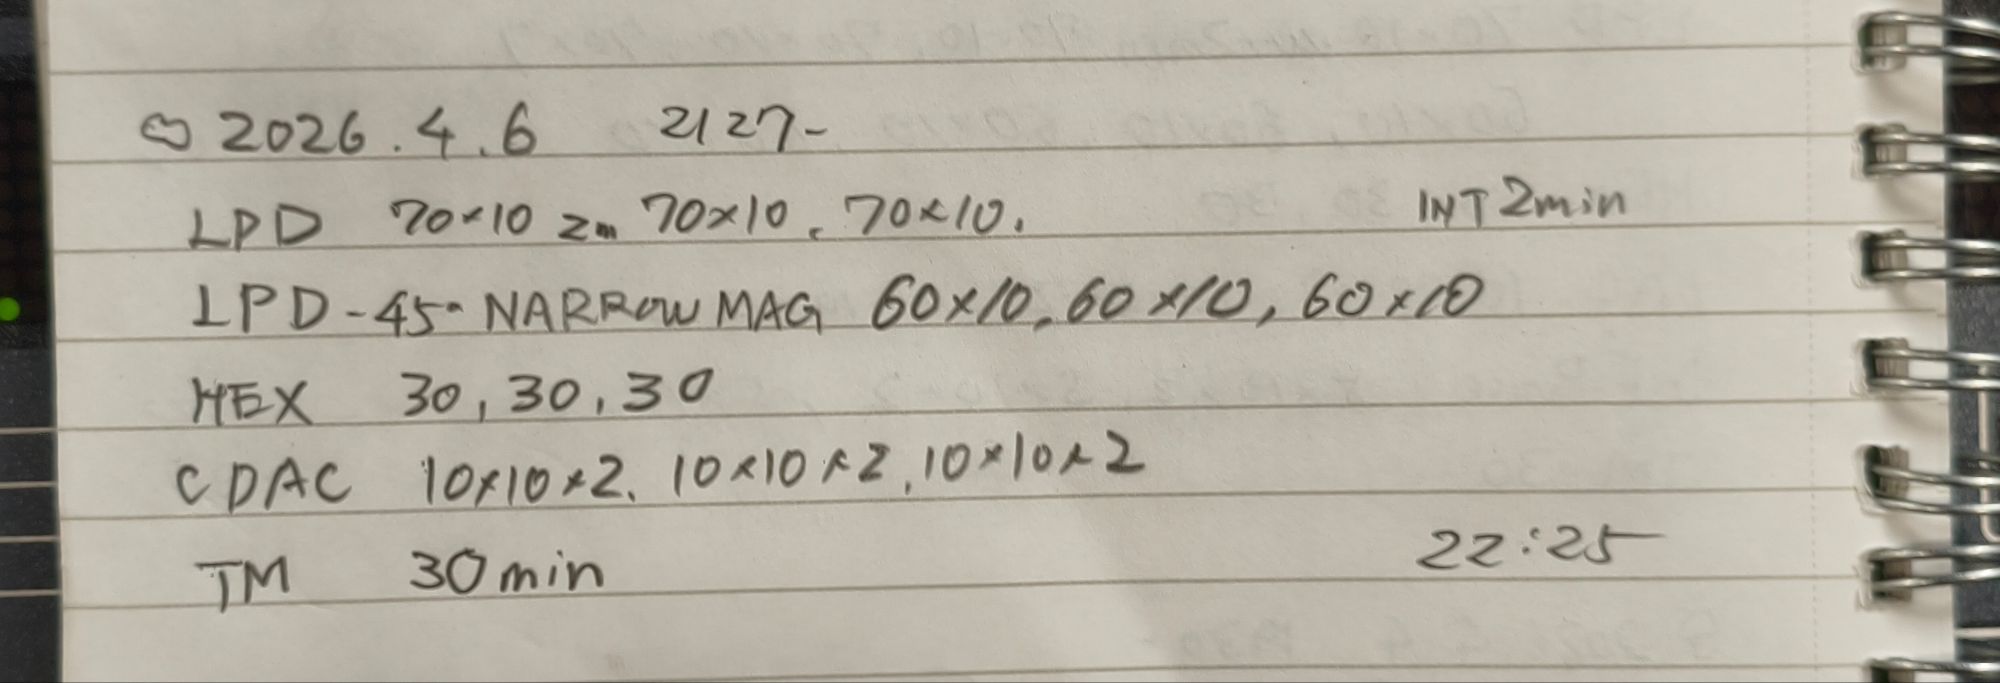 2026.4.6 2127-
LPD 70×10 2m 70×10, 70×10, INT 2min
LPD-45° NARROW MAG 60×10, 60×10, 60×10
HEX 30, 30, 30
CDAC 10×10×2, 10×10×2, 10×10×2
TM 30min 22:25